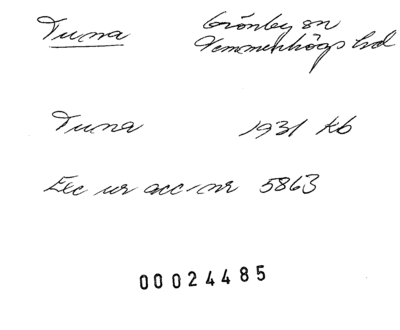 Tuna Grönby sn
Vemmenhögs hd
Tuna 1931 kb
Exc ur acc-nr 5863
00024485